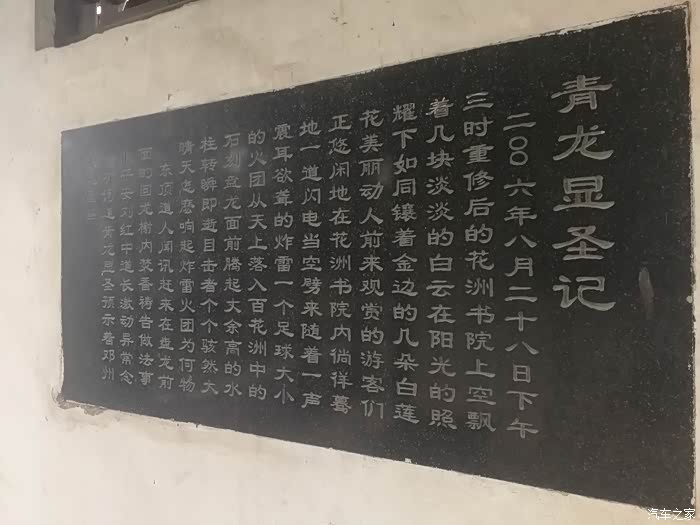 青龙显圣记
二〇〇六年八月二十八日下午
三时重修后的花洲书院上空飘
着几块淡淡的白云在阳光的照
耀下如同镶着金边的几朵白莲
花美丽动人前来观赏的游客们
正悠闲地在花洲书院内徜徉蓦
地一道闪电当空劈来随着一声
震耳欲聋的炸雷一个足球大小
的火团从天上落入百花洲中的
石刻盘龙面前腾起丈余高的水
柱转瞬即逝目击者个个骇然大
晴天怎麽响起炸雷火团为何物
东顶道人闻讯赶来在盘龙前
面的回龙榭内焚香祷告做法事
安刘红中道长激动异常念
道青龙显圣预示着邓州
汽车之家